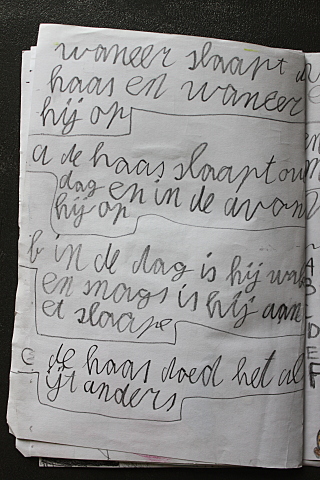 waneer slaapt
haas en waneer
hij op
a de haas slaapt
dag en in de avon
hij op
b in de dag is hij wak
en snags is hij aan
et slaape
c de haas doed het al
ijt anders
A
B
C
D
E
F